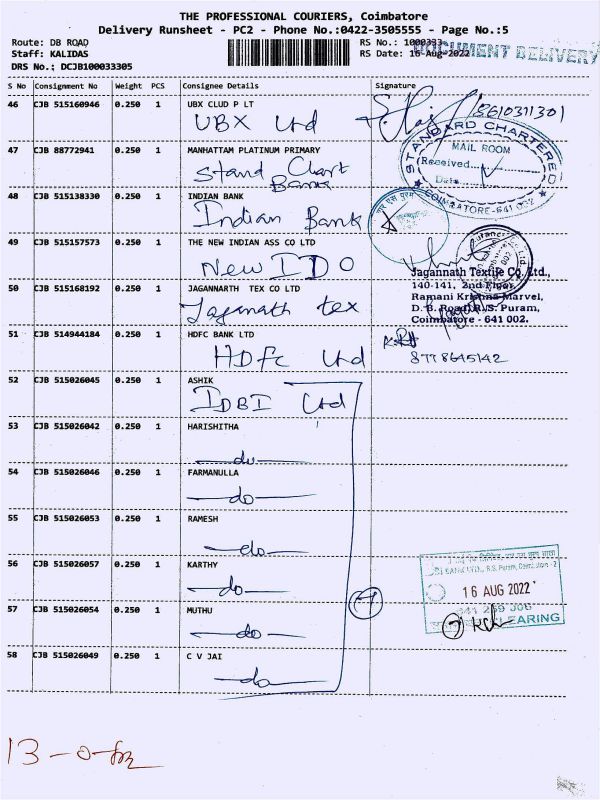 THE PROFESSIONAL COURIERS, Coimbatore
Delivery Runsheet - PC2 - Phone No.:0422-3505555 - Page No.:5
Route: DB ROAD
Staff: KALIDAS
DRS No.; DCJB100033305
RS No.: 1000393
RS Date: 16-Aug-2022
DOCUMENT DELIVERY
S No Consignment No Weight PCS Consignee Details Signature
46 CJB 515160946 0.250 1 UBX CLUD P LT
UBX Ltd
8610311301
47 CJB 88772941 0.250 1 MANHATTAM PLATINUM PRIMARY
Stand Chart
Bank
STANDARD CHARTERED
MAIL ROOM
Received
Date
COIMBATORE-641 002
48 CJB 515138330 0.250 1 INDIAN BANK
Indian Bank
49 CJB 515157573 0.250 1 THE NEW INDIAN ASS CO LTD
New IDO
50 CJB 515168192 0.250 1 JAGANNARTH TEX CO LTD
Jaganath tex
Jagannath Textile Co. Ltd.,
140-141, 2nd Floor,
Ramani Krishna Marvel,
D. B. Road, R.S. Puram,
Coimbatore - 641 002.
51 CJB 514944184 0.250 1 HDFC BANK LTD
HDFC Ltd
8778645142
52 CJB 515026045 0.250 1 ASHIK
IDBI Ltd
53 CJB 515026042 0.250 1 HARISHITHA
do
54 CJB 515026046 0.250 1 FARMANULLA
do
55 CJB 515026053 0.250 1 RAMESH
do
56 CJB 515026057 0.250 1 KARTHY
do
57 CJB 515026054 0.250 1 MUTHU
do
58 CJB 515026049 0.250 1 C V JAI
do
7
BANK LTD., R.S. Puram,
16 AUG 2022
CLEARING
7